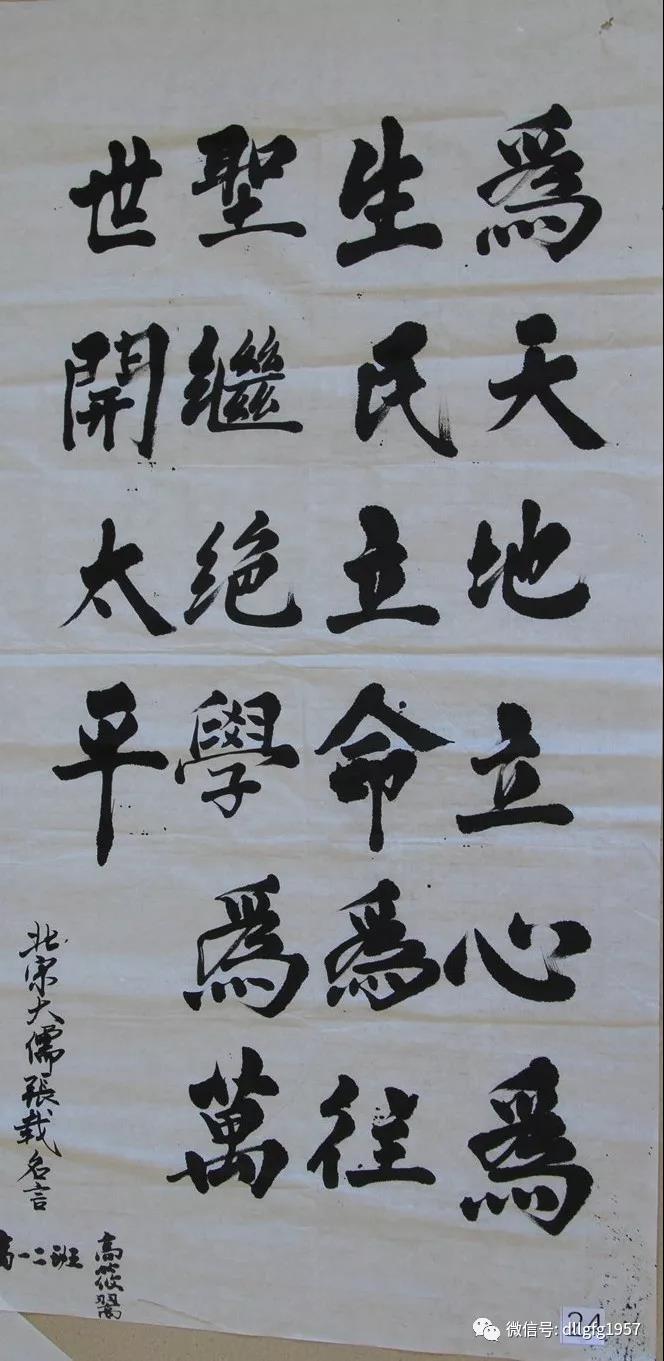 爲天地立心爲
生民立命爲往
聖繼絶學爲萬
世開太平
北宋大儒張載名言
高一二班
高筱
微信号: dllgfg1957
24